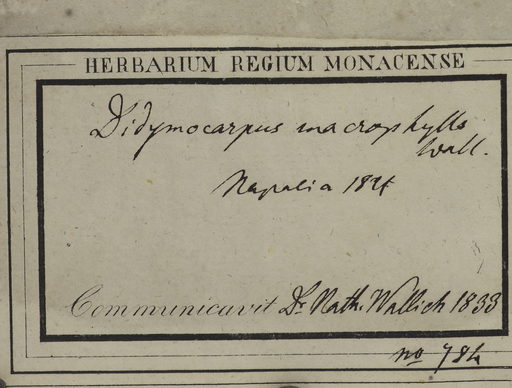 HERBARIUM REGIUM MONACENSE
Didymocarpus macrophylls
Wall.
Napalia 1821
Communicavit Dr. Nath. Wallich 1833
no 784